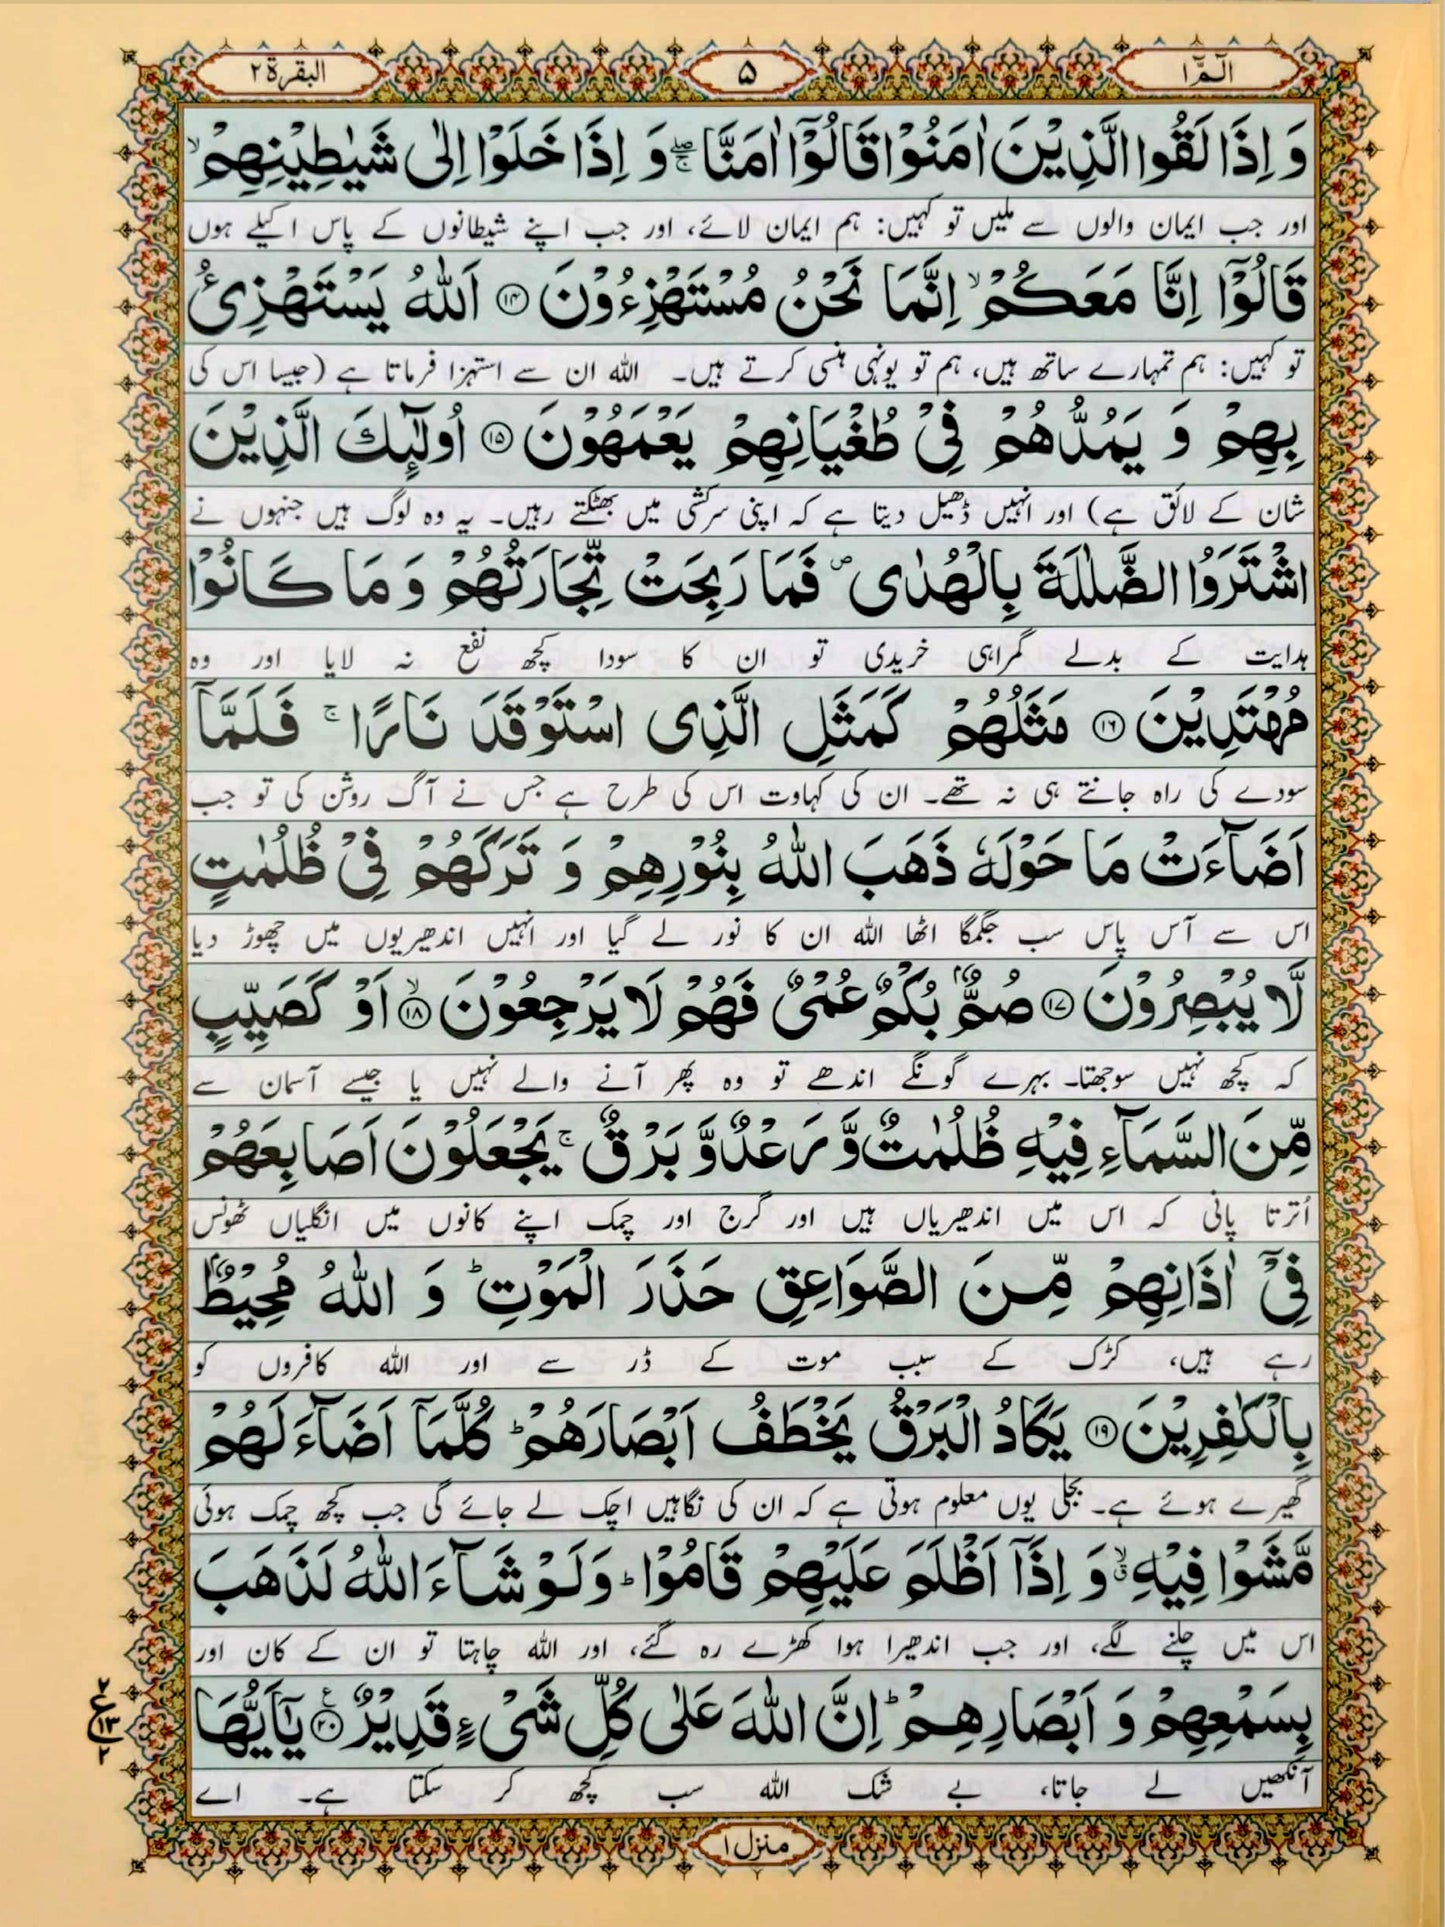 الٓمّٓ ۱
۵
البقرة ۲
وَ اِذَا لَقُوا الَّذِیْنَ اٰمَنُوْا قَالُوْۤا اٰمَنَّا ۖۚ وَ اِذَا خَلَوْا اِلٰى شَیٰطِیْنِهِمْ ۙ
اور جب ایمان والوں سے ملیں تو کہیں: ہم ایمان لائے، اور جب اپنے شیطانوں کے پاس اکیلے ہوں
قَالُوْۤا اِنَّا مَعَكُمْ ۙ اِنَّمَا نَحْنُ مُسْتَهْزِءُوْنَ ﴿۱۴﴾ اَللّٰهُ یَسْتَهْزِئُ
تو کہیں: ہم تمہارے ساتھ ہیں، ہم تو یونہی ہنسی کرتے ہیں۔ اللہ ان سے استہزا فرماتا ہے (جیسا اس کی
بِهِمْ وَ یَمُدُّهُمْ فِیْ طُغْیَانِهِمْ یَعْمَهُوْنَ ﴿۱۵﴾ اُولٰٓىِٕكَ الَّذِیْنَ
شان کے لائق ہے) اور انہیں ڈھیل دیتا ہے کہ اپنی سرکشی میں بھٹکتے رہیں۔ یہ وہ لوگ ہیں جنہوں نے
اشْتَرَوُا الضَّلٰلَةَ بِالْهُدٰى ۪ فَمَا رَبِحَتْ تِّجَارَتُهُمْ وَ مَا كَانُوْا
ہدایت کے بدلے گمراہی خریدی تو ان کا سودا کچھ نفع نہ لایا اور وہ
مُهْتَدِیْنَ ﴿۱۶﴾ مَثَلُهُمْ كَمَثَلِ الَّذِی اسْتَوْقَدَ نَارًا ۚ فَلَمَّاۤ
سودے کی راہ جانتے ہی نہ تھے۔ ان کی کہاوت اس کی طرح ہے جس نے آگ روشن کی تو جب
اَضَآءَتْ مَا حَوْلَهٗ ذَهَبَ اللّٰهُ بِنُوْرِهِمْ وَ تَرَكَهُمْ فِیْ ظُلُمٰتٍ
اس سے آس پاس سب جگمگا اٹھا اللہ ان کا نور لے گیا اور انہیں اندھیریوں میں چھوڑ دیا
لَّا یُبْصِرُوْنَ ﴿۱۷﴾ صُمٌّۢ بُكْمٌ عُمْیٌ فَهُمْ لَا یَرْجِعُوْنَ ۙ﴿۱۸﴾ اَوْ كَصَیِّبٍ
کہ کچھ نہیں سوجھتا۔ بہرے گونگے اندھے تو وہ پھر آنے والے نہیں یا جیسے آسمان سے
مِّنَ السَّمَآءِ فِیْهِ ظُلُمٰتٌ وَّ رَعْدٌ وَّ بَرْقٌ ۚ یَجْعَلُوْنَ اَصَابِعَهُمْ
اُترتا پانی کہ اس میں اندھیریاں ہیں اور گرج اور چمک اپنے کانوں میں انگلیاں ٹھونس
فِیْۤ اٰذَانِهِمْ مِّنَ الصَّوَاعِقِ حَذَرَ الْمَوْتِ ؕ وَ اللّٰهُ مُحِیْطٌۢ
رہے ہیں، کڑک کے سبب موت کے ڈر سے اور اللہ کافروں کو
بِالْكٰفِرِیْنَ ﴿۱۹﴾ یَكَادُ الْبَرْقُ یَخْطَفُ اَبْصَارَهُمْ ؕ كُلَّمَاۤ اَضَآءَ لَهُمْ
گھیرے ہوئے ہے۔ بجلی یوں معلوم ہوتی ہے کہ ان کی نگاہیں اچک لے جائے گی جب کچھ چمک ہوئی
مَّشَوْا فِیْهِ ۙۗ وَ اِذَاۤ اَظْلَمَ عَلَیْهِمْ قَامُوْا ؕ وَ لَوْ شَآءَ اللّٰهُ لَذَهَبَ
اس میں چلنے لگے، اور جب اندھیرا ہوا کھڑے رہ گئے، اور اللہ چاہتا تو ان کے کان اور
بِسَمْعِهِمْ وَ اَبْصَارِهِمْ ؕ اِنَّ اللّٰهَ عَلٰى كُلِّ شَیْءٍ قَدِیْرٌ ﴿۲۰﴾ ع یٰۤاَیُّهَا
۲
ع ۱۳
۲
آنکھیں لے جاتا، بے شک اللہ سب کچھ کر سکتا ہے۔ اے
منزل ۱